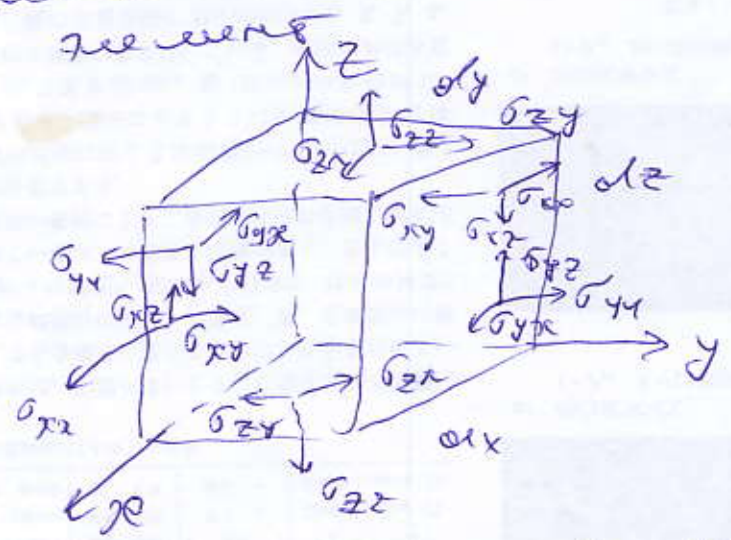 элемент
z
dy
σzz
σzy
σzx
dz
σxx
σxy
σyx
σxz
σyy
σyz
σyz
σxz
σyy
σxy
σyx
y
σzx
σxx
σzy
dx
σzz
x